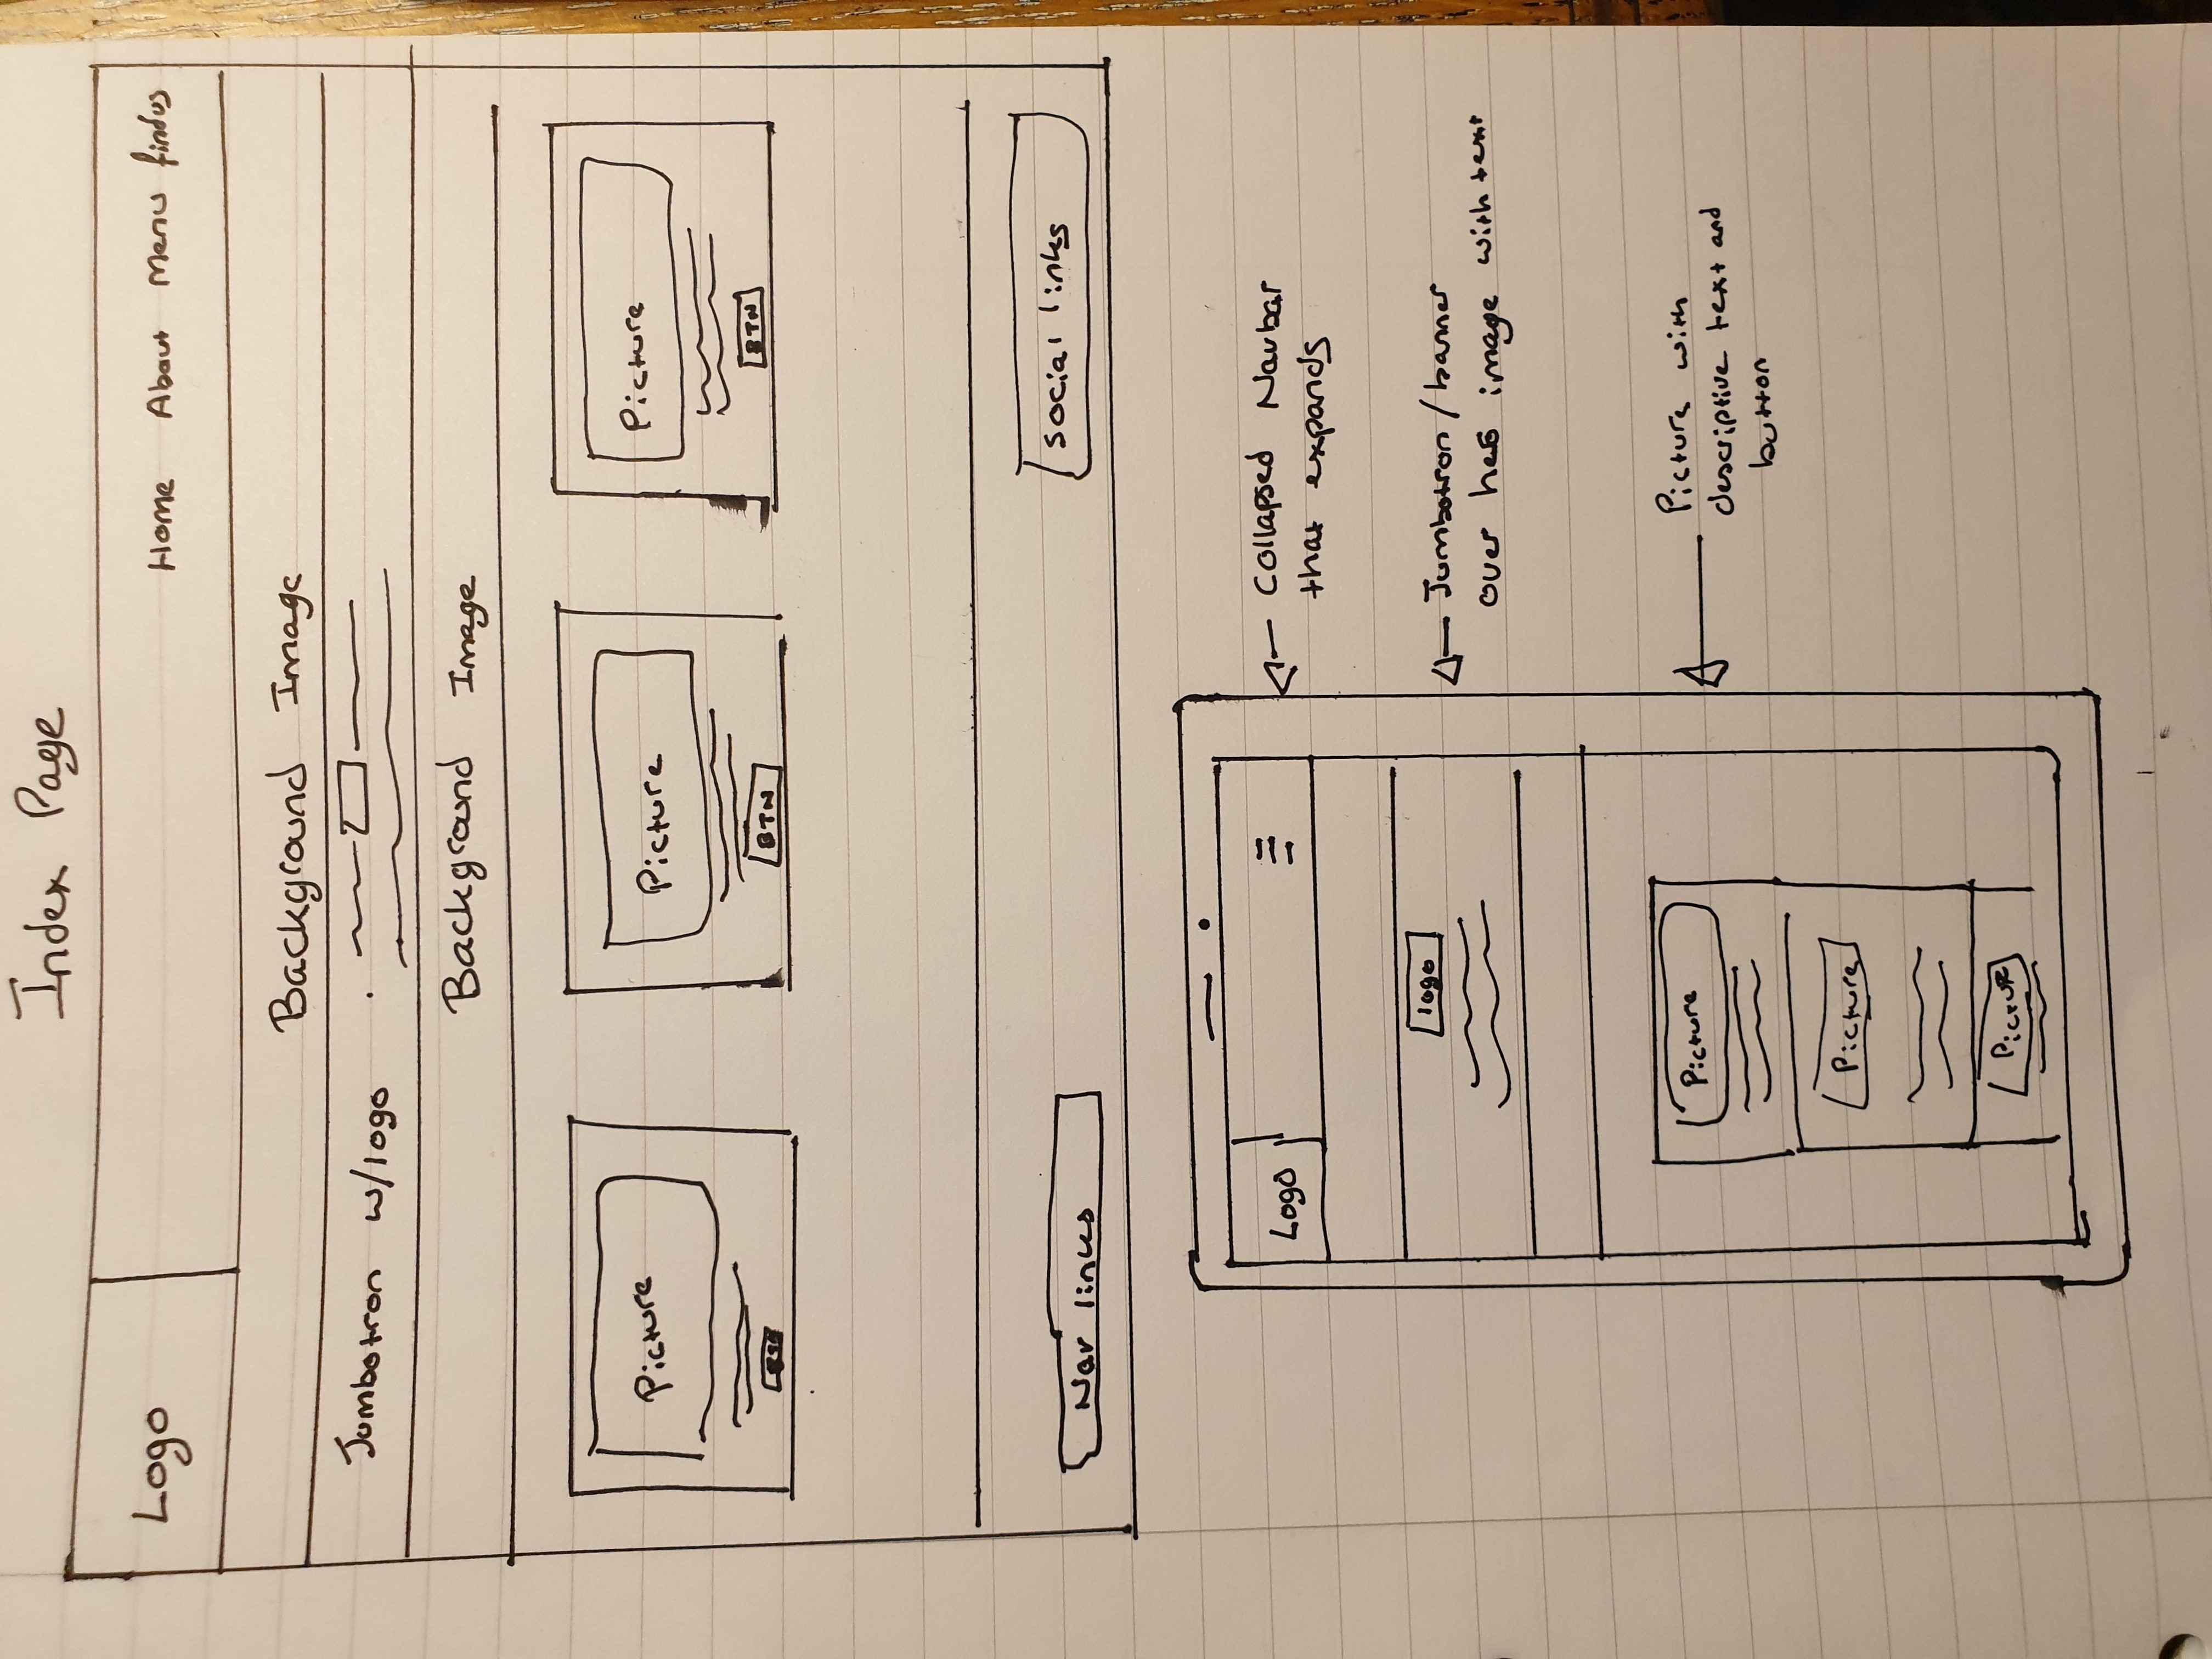 Index Page
Logo
Home About Menu findus
Background Image
Jumbotron w/logo
Background Image
Picture
Picture
Picture
BTN
BTN
Nav links
Social links
Logo
Collapsed Navbar
that expands
logo
Jumbotron / banner
over hero image with text
Picture
Picture with
descriptive text and
button
Picture
Picture